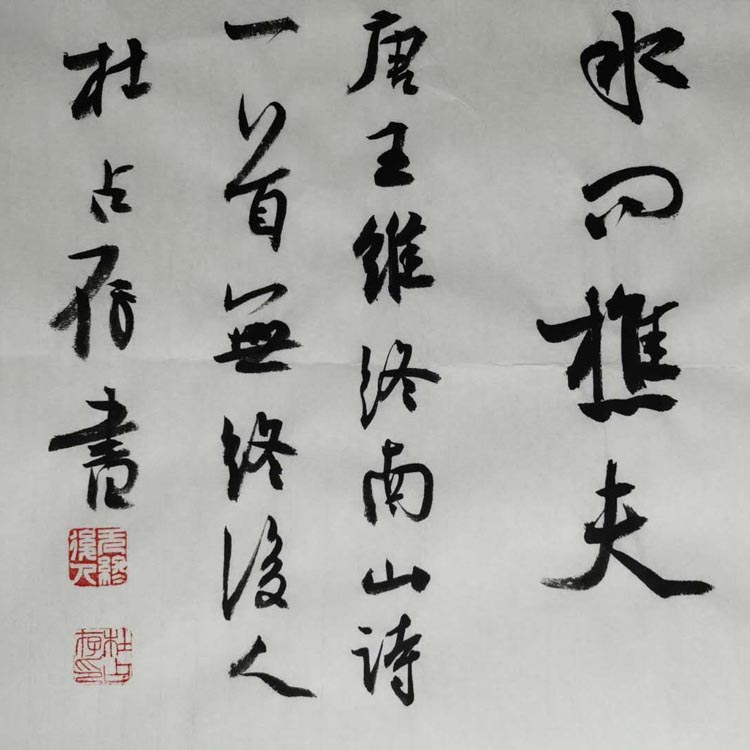 水问樵夫
唐王维终南山诗
一首無终後人
杜占存書
无終後人
杜占存印